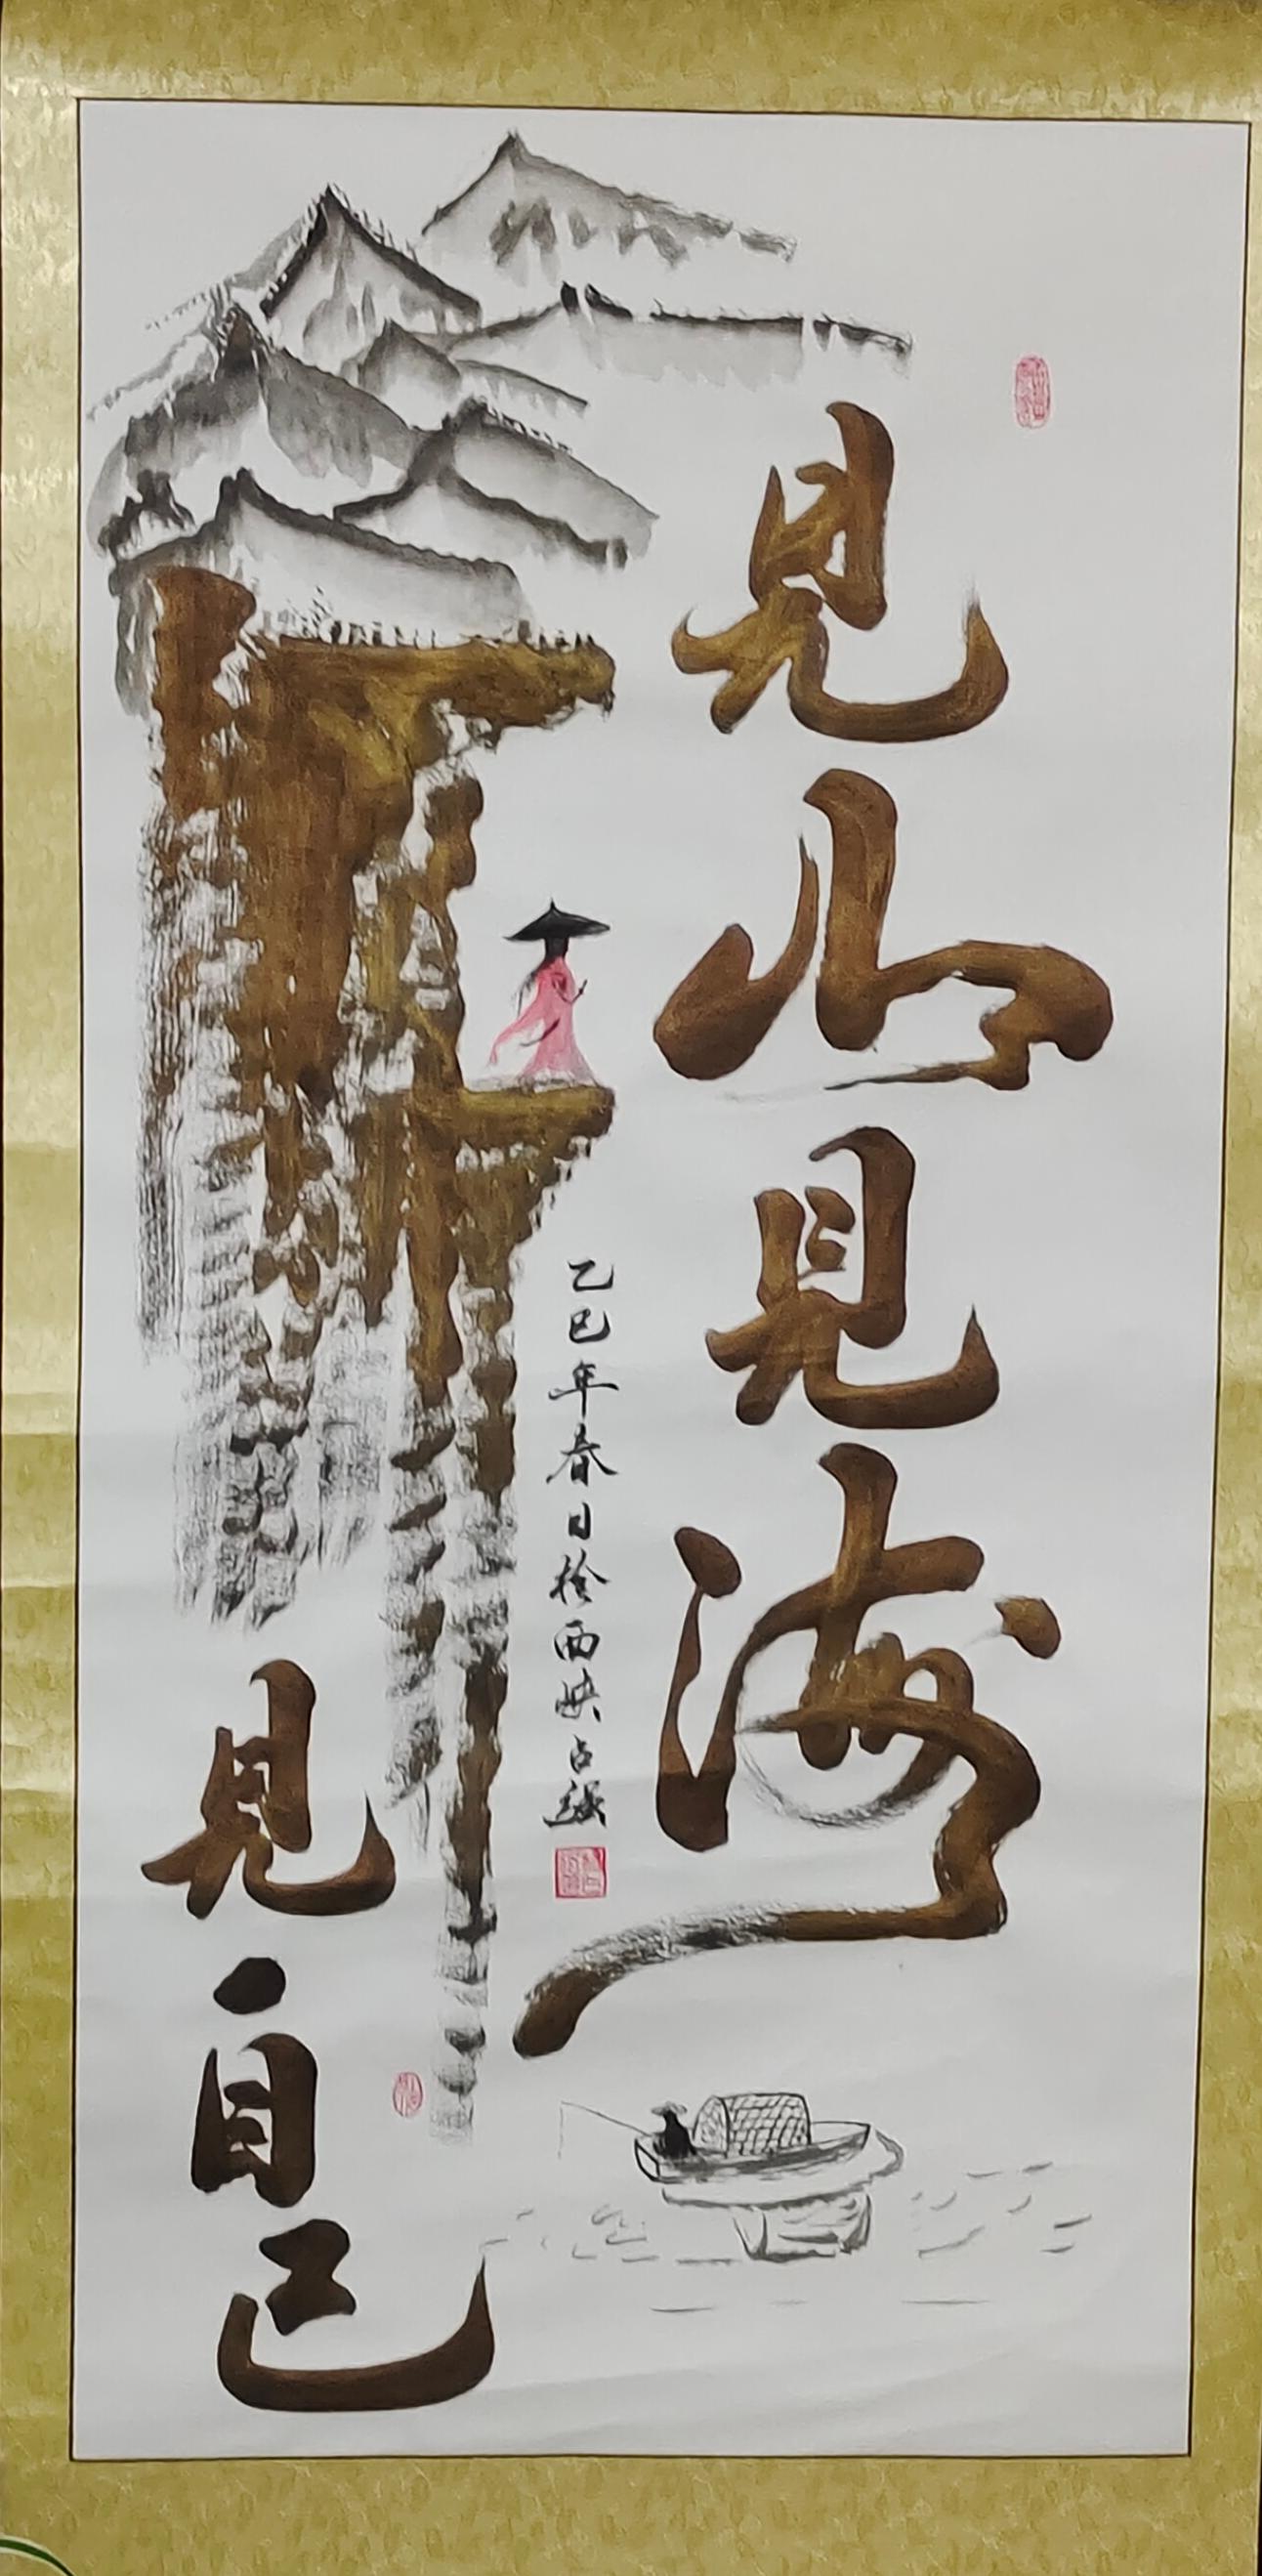 見山見海
見自己
乙巳年春日於西峽占強